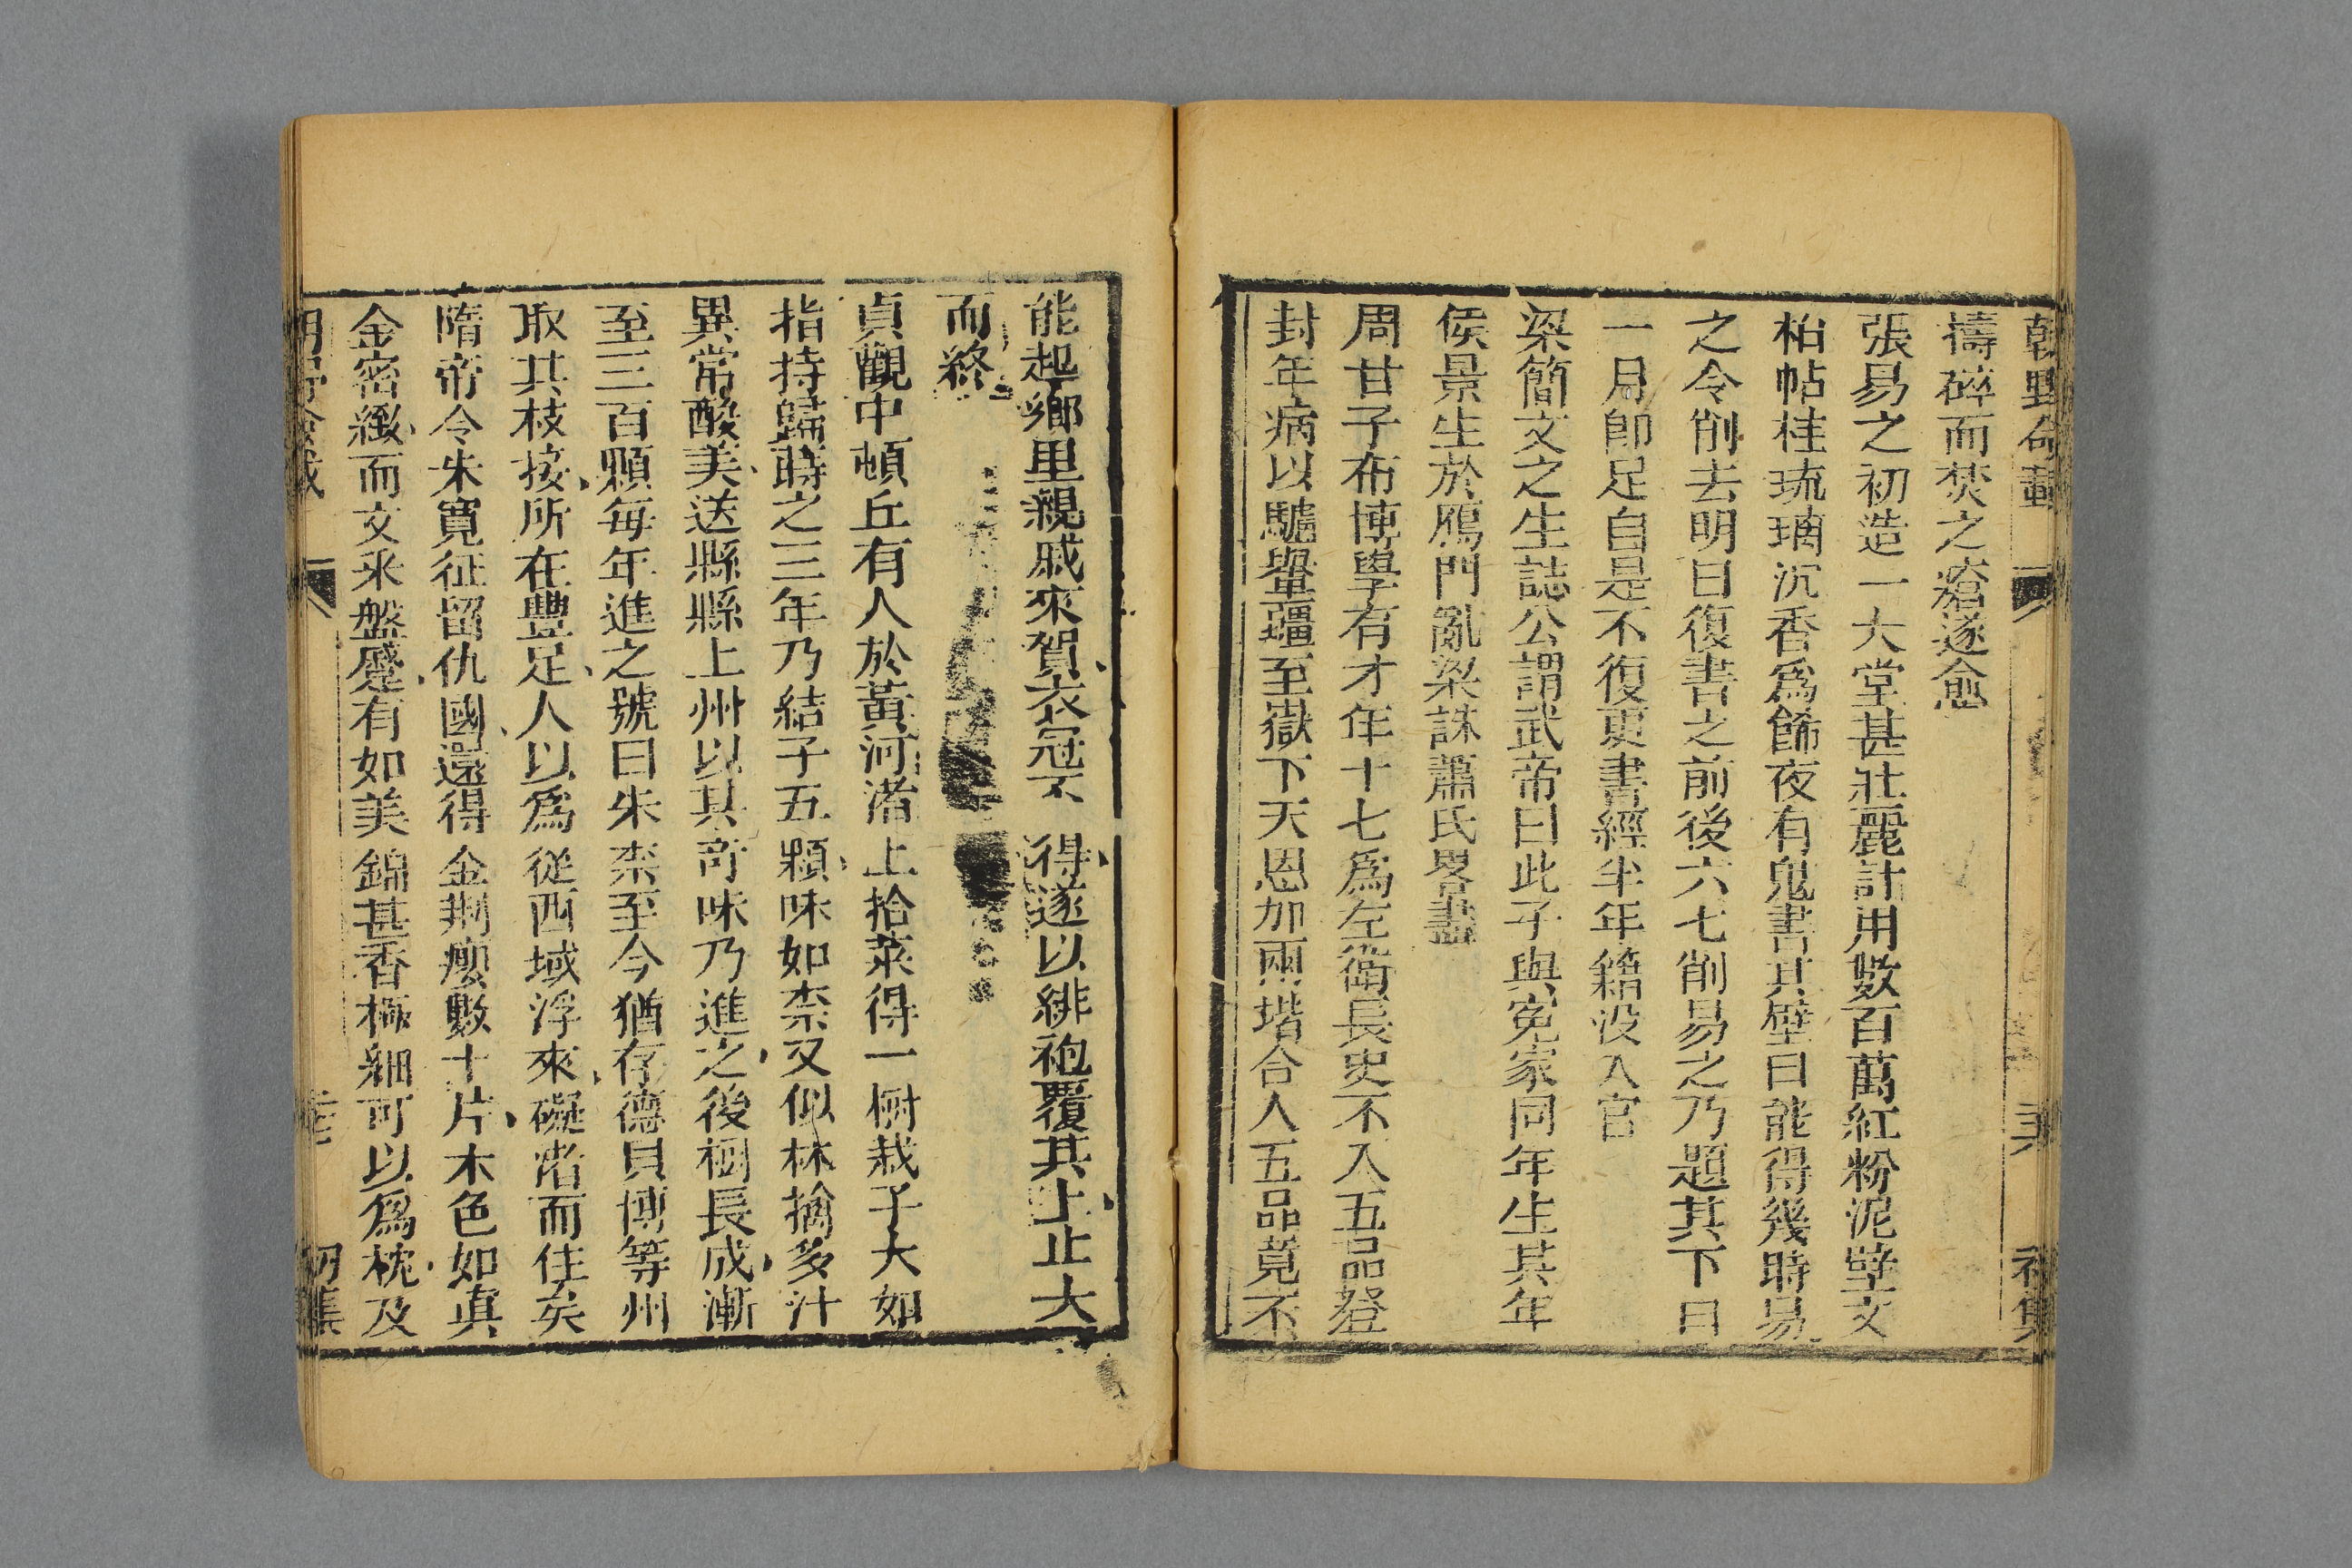 朝野僉載
初集
禱碎而焚之瘡遂愈
張易之初造一大堂甚壯麗計用數百萬紅粉泥壁文
柏帖桂琉璃沉香爲飾夜有鬼書其壁曰能得幾時易
之令削去明日復書之前後六七削易之乃題其下曰
一月即足自是不復更書經半年籍沒入官
梁簡文之生誌公謂武帝曰此子與寃家同年生其年
侯景生於鴈門亂梁誅蕭氏畧盡
周甘子布博學有才年十七爲左衞長史不入五品登
封年病以驢轝彊至嶽下天恩加兩堦合入五品竟不
能起鄉里親戚來賀衣冠不得遂以緋袍覆其上止大
而終
貞觀中頓丘有人於黃河渚上拾菜得一樹栽子大如
指持歸蒔之三年乃結子五顆味如柰又似林擒多汁
異常酸美送縣縣上州以其奇味乃進之後樹長成漸
至三百顆每年進之號曰朱柰至今猶存德貝博等州
取其枝接所在豐足人以爲從西域浮來礙渚而住矣
隋帝令朱寬征留仇國還得金荆癭數十片木色如真
金密緻而文釆盤蹙有如美錦甚香極細可以爲枕及
朝野僉載
初集